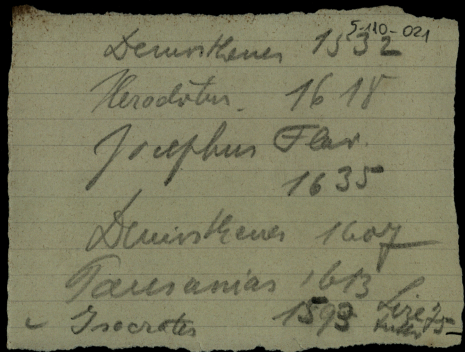 5-110-021
Demosthenes 1532
Herodotus. 1618
Josephus Flav.
1635
Demosthenes 1607
Pausanias 1613
Isocrates 1593